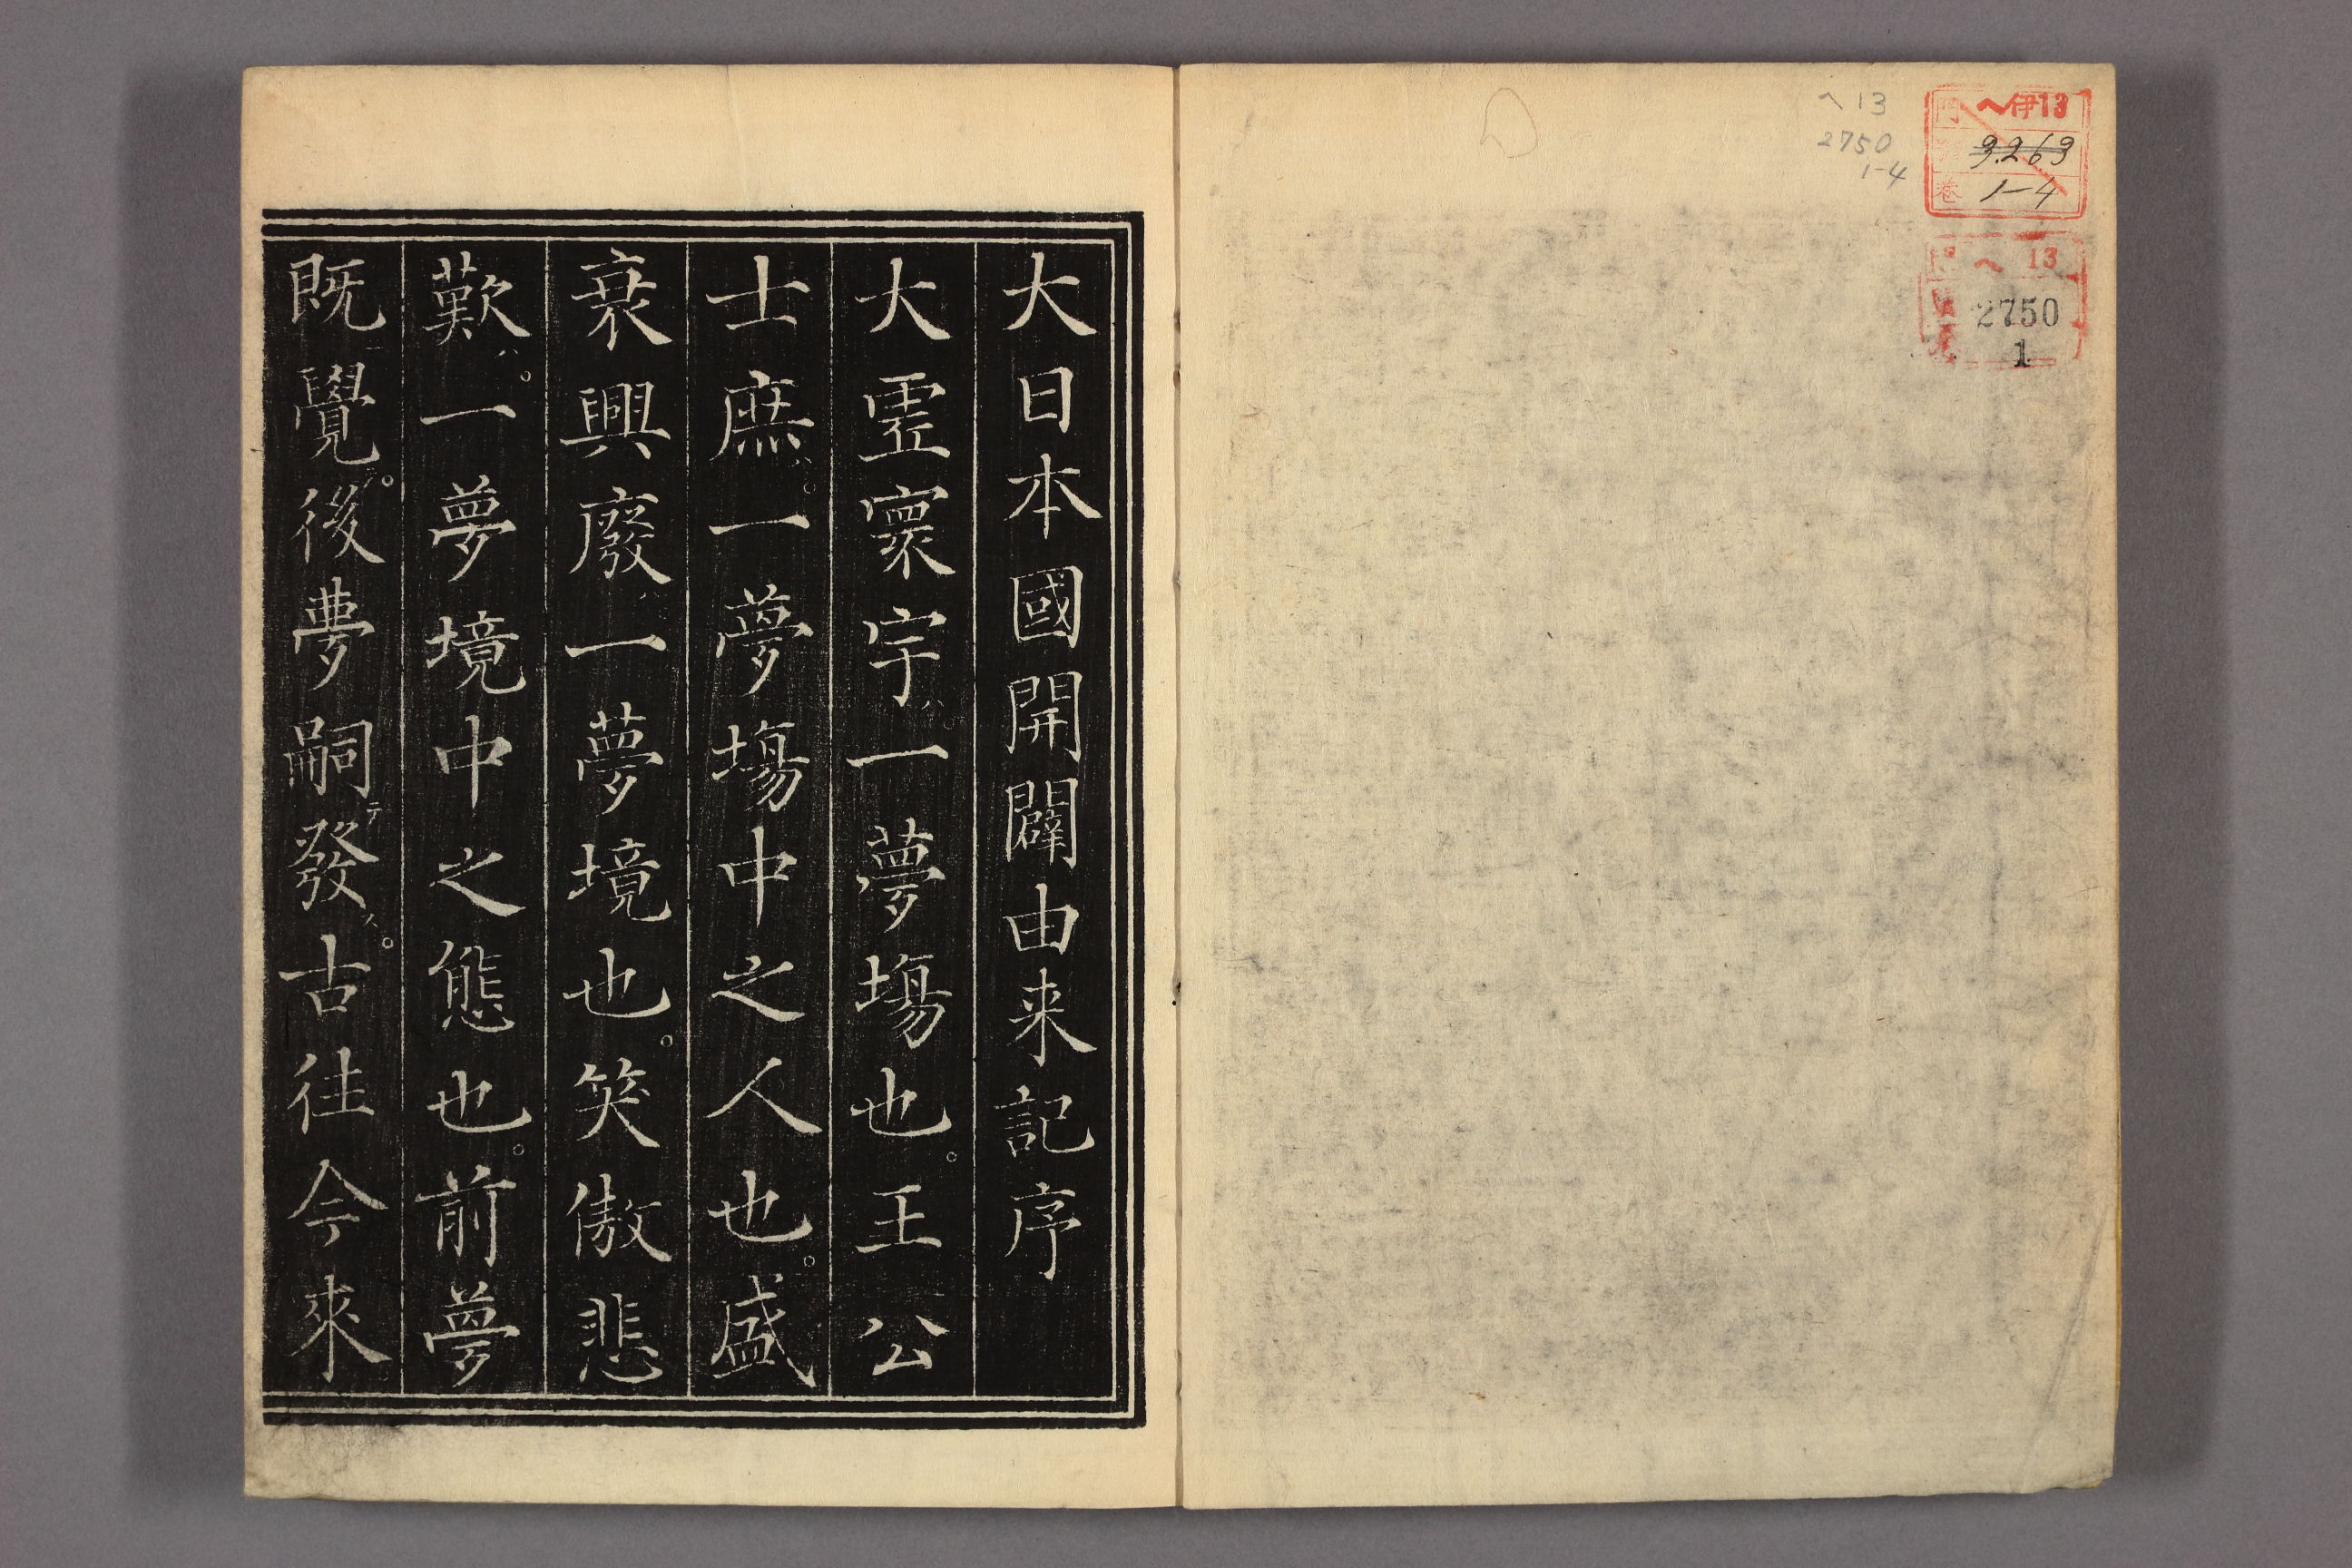 ヘ13
2750
1-4
ヘ伊13
3263
巻 1-4
ヘ 13
2750
1
大日本國開闢由来記序
大霊寰宇ハ。一夢場也。王公
士庶ハ。一夢場中之人也。盛
衰興廢ハ一夢境也。笑傲悲
歎ハ。一夢境中之態也。前夢
既覺。後夢嗣テ發ス。古往今來